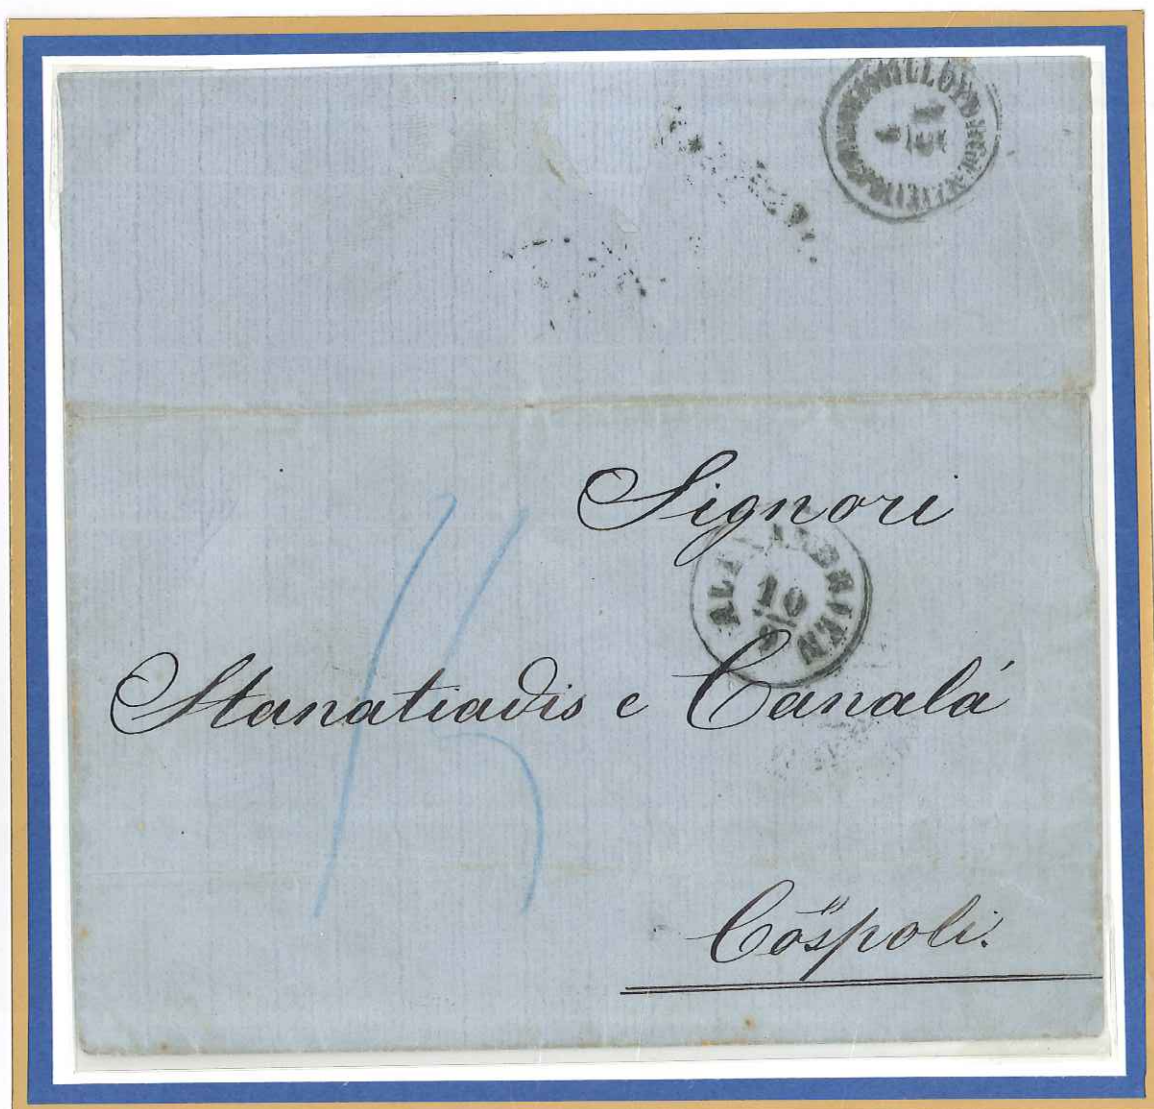 LLOYD
15
9
Signori
ALEXANDRIEN
10
9
15
Stanatiadis e Canalá
Cospoli.